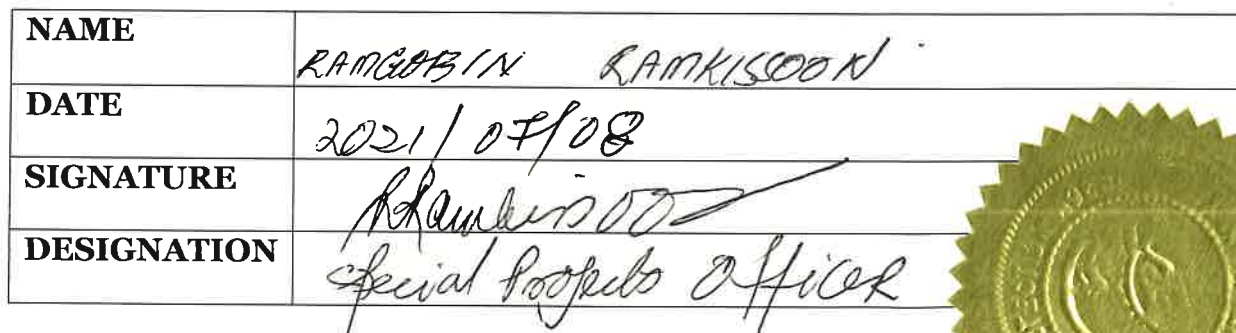 NAME RAMGOBIN RAMKISSOON
DATE 2021/07/08
SIGNATURE RRamkissoon
DESIGNATION Special Projects Officer